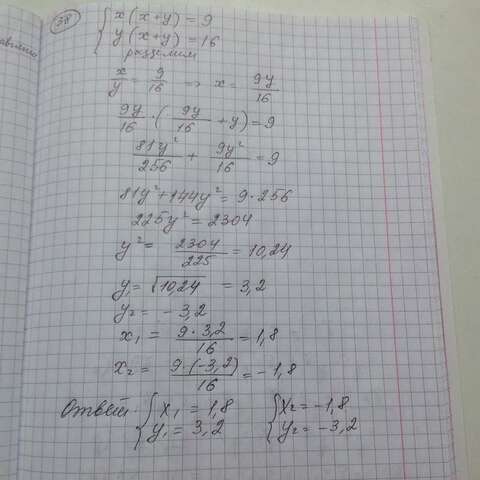 38
{ x(x+y) = 9
{ y(x+y) = 16
разделим
x/y = 9/16 => x = 9y/16
9y/16 · (9y/16 + y) = 9
81y²/256 + 9y²/16 = 9
81y² + 144y² = 9·256
225y² = 2304
y² = 2304/225 = 10,24
y₁ = √10,24 = 3,2
y₂ = -3,2
x₁ = 9·3,2/16 = 1,8
x₂ = 9·(-3,2)/16 = -1,8
Ответ: { x₁ = 1,8 { x₂ = -1,8
{ y₁ = 3,2 { y₂ = -3,2